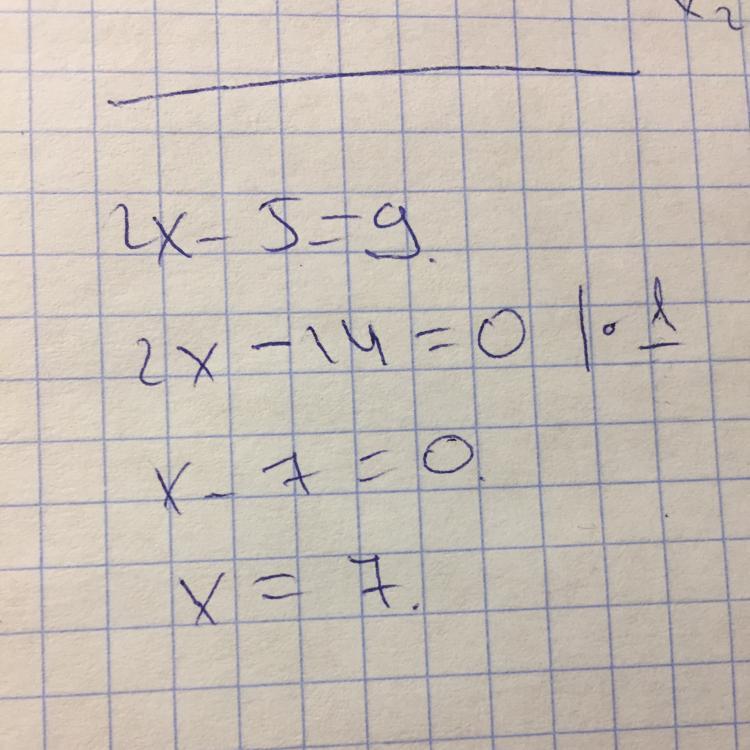 x₂
2x - 5 = 9.
2x - 14 = 0 | · 1
x - 7 = 0.
x = 7.